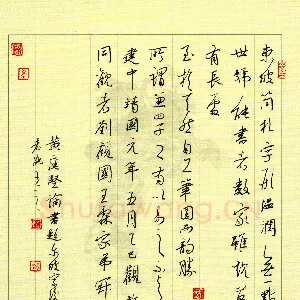 東坡簡札字形温潤無一點
世號能書者數家雖規
有長處
至於天然自工筆圓而韵勝
所謂兼四子之有以易之不与
建中靖國元年五月乙巳觀於
同觀者劉觀國王霖家弟
黄庭堅論書題東坡字後